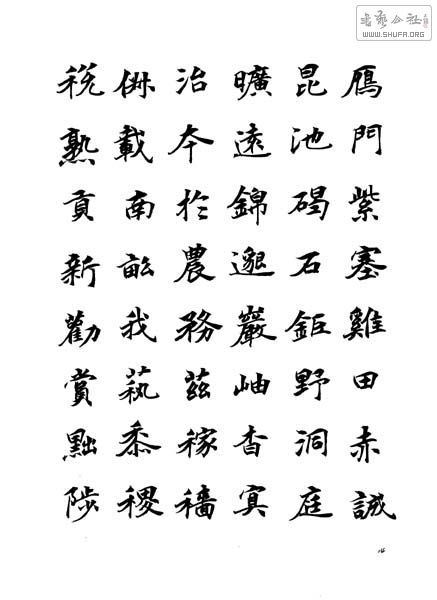 書藝公社
WWW.SHUFA.ORG
鴈門紫塞雞田赤誠
昆池碣石鉅野洞庭
曠遠錦邈巖岫杳冥
治本於農務茲稼穡
俶載南畝我藝黍稷
稅熟貢新勸賞黜陟